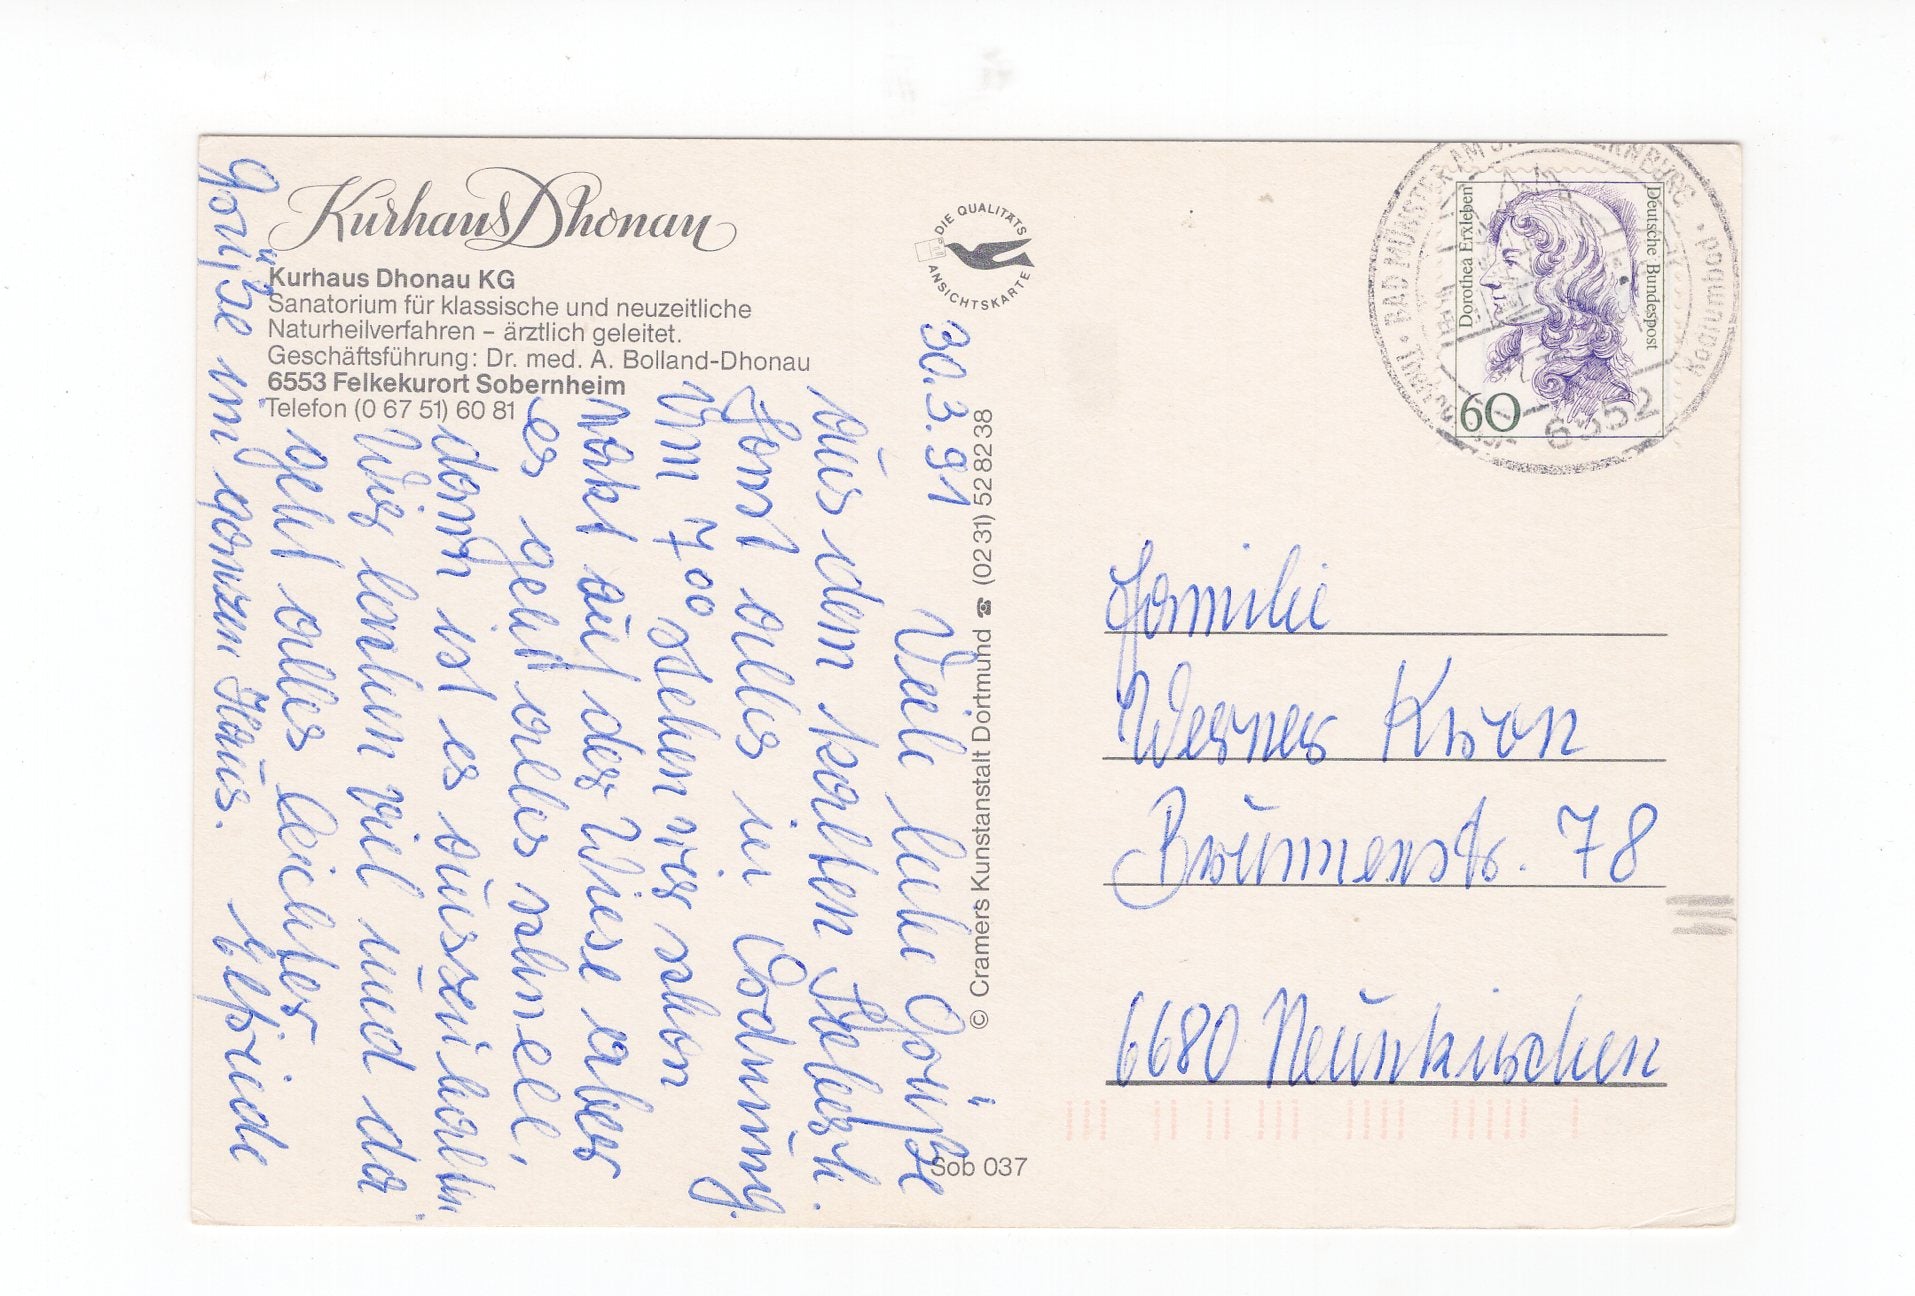 Kurhaus Dhonau
Kurhaus Dhonau KG
Sanatorium für klassische und neuzeitliche
Naturheilverfahren – ärztlich geleitet.
Geschäftsführung: Dr. med. A. Bolland-Dhonau
6553 Felkekurort Sobernheim
Telefon (0 67 51) 60 81
DIE QUALITÄTS
ANSICHTSKARTE
30.3.91
Viele liebe Grüße
aus dem kalten
Sonst alles in Ordnung.
Um 7.00 stehen wir schon
nakt auf der Wiese aber
es geht alles schnell,
denn ist es auszuhalten.
Wir lachen viel und da
geht alles leichter
Grüße im ganzen Haus. Elfriede
© Cramers Kunstanstalt Dortmund ☎ (02 31) 52 82 38
Sob 037
Deutsche Bundespost
Dorothea Erxleben
60
BAD MÜNSTER AM
6552
Familie
Werner Kron
Brunnenstr. 78
6680 Neunkirchen